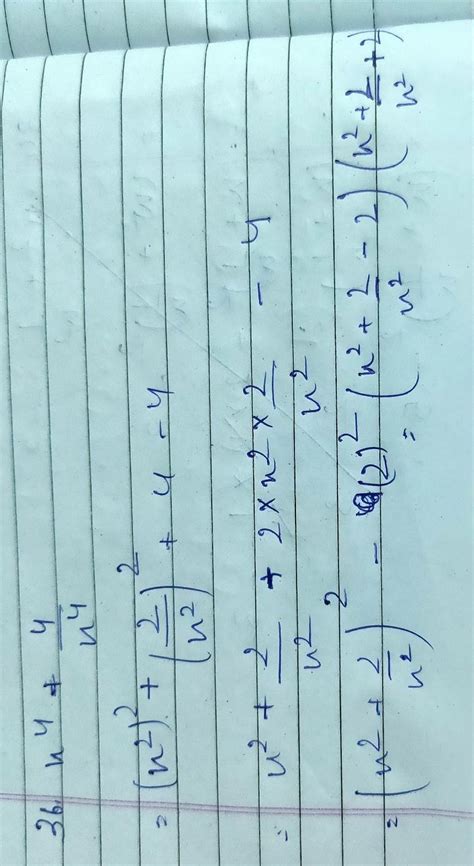 36. x⁴ + 4/x⁴
= (x²)² + (2/x²)² + 4 - 4
= x² + 2/x² + 2 × x² × 2/x² - 4
= (x² + 2/x²)² - (2)² = (x² + 2/x² - 2) (x² + 2/x² + 2)